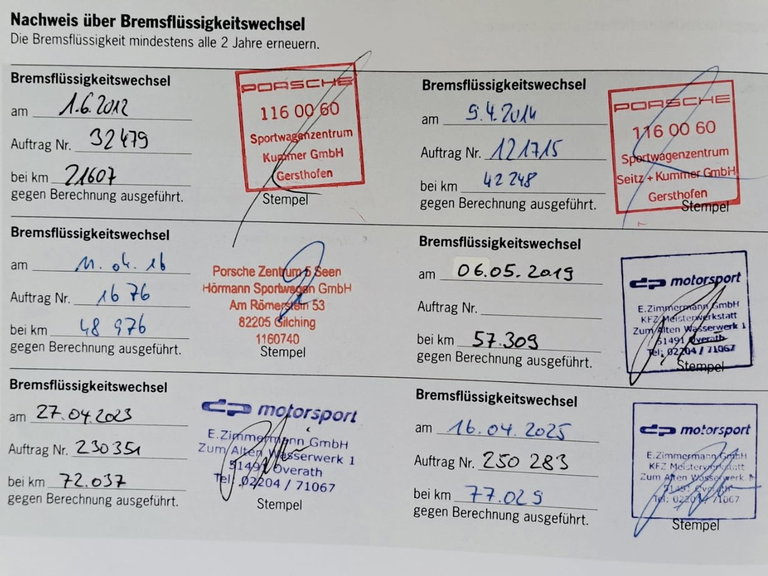 Nachweis über Bremsflüssigkeitswechsel
Die Bremsflüssigkeit mindestens alle 2 Jahre erneuern.
Bremsflüssigkeitswechsel
am 1.6.2012
Auftrag Nr. 32479
bei km 21607
gegen Berechnung ausgeführt.
PORSCHE
116 00 60
Sportwagenzentrum
Kummer GmbH
Gersthofen
Stempel
Bremsflüssigkeitswechsel
am 9.4.2014
Auftrag Nr. 121715
bei km 42248
gegen Berechnung ausgeführt.
PORSCHE
116 00 60
Sportwagenzentrum
Seitz + Kummer GmbH
Gersthofen
Stempel
Bremsflüssigkeitswechsel
am 11.04.16
Auftrag Nr. 1676
bei km 48976
gegen Berechnung ausgeführt.
Porsche Zentrum 5 Seen
Hörmann Sportwagen GmbH
Am Römerstein 53
82205 Gilching
1160740
Stempel
Bremsflüssigkeitswechsel
am 06.05.2019
Auftrag Nr.
bei km 57.309
gegen Berechnung ausgeführt.
dp motorsport
E.Zimmermann GmbH
KFZ Meisterwerkstatt
Zum Alten Wasserwerk 1
51491 Overath
Tel: 02204 / 71067
Stempel
Bremsflüssigkeitswechsel
am 27.04.2023
Auftrag Nr. 230351
bei km 72.037
gegen Berechnung ausgeführt.
dp motorsport
E.Zimmermann GmbH
Zum Alten Wasserwerk 1
51491 Overath
Tel: 02204 / 71067
Stempel
Bremsflüssigkeitswechsel
am 16.04.2025
Auftrag Nr. 250 283
bei km 77.029
gegen Berechnung ausgeführt.
dp motorsport
E.Zimmermann GmbH
KFZ Meisterwerkstatt
Zum Alten Wasserwerk 1
51491 Overath
Tel: 02204 / 71067
Stempel